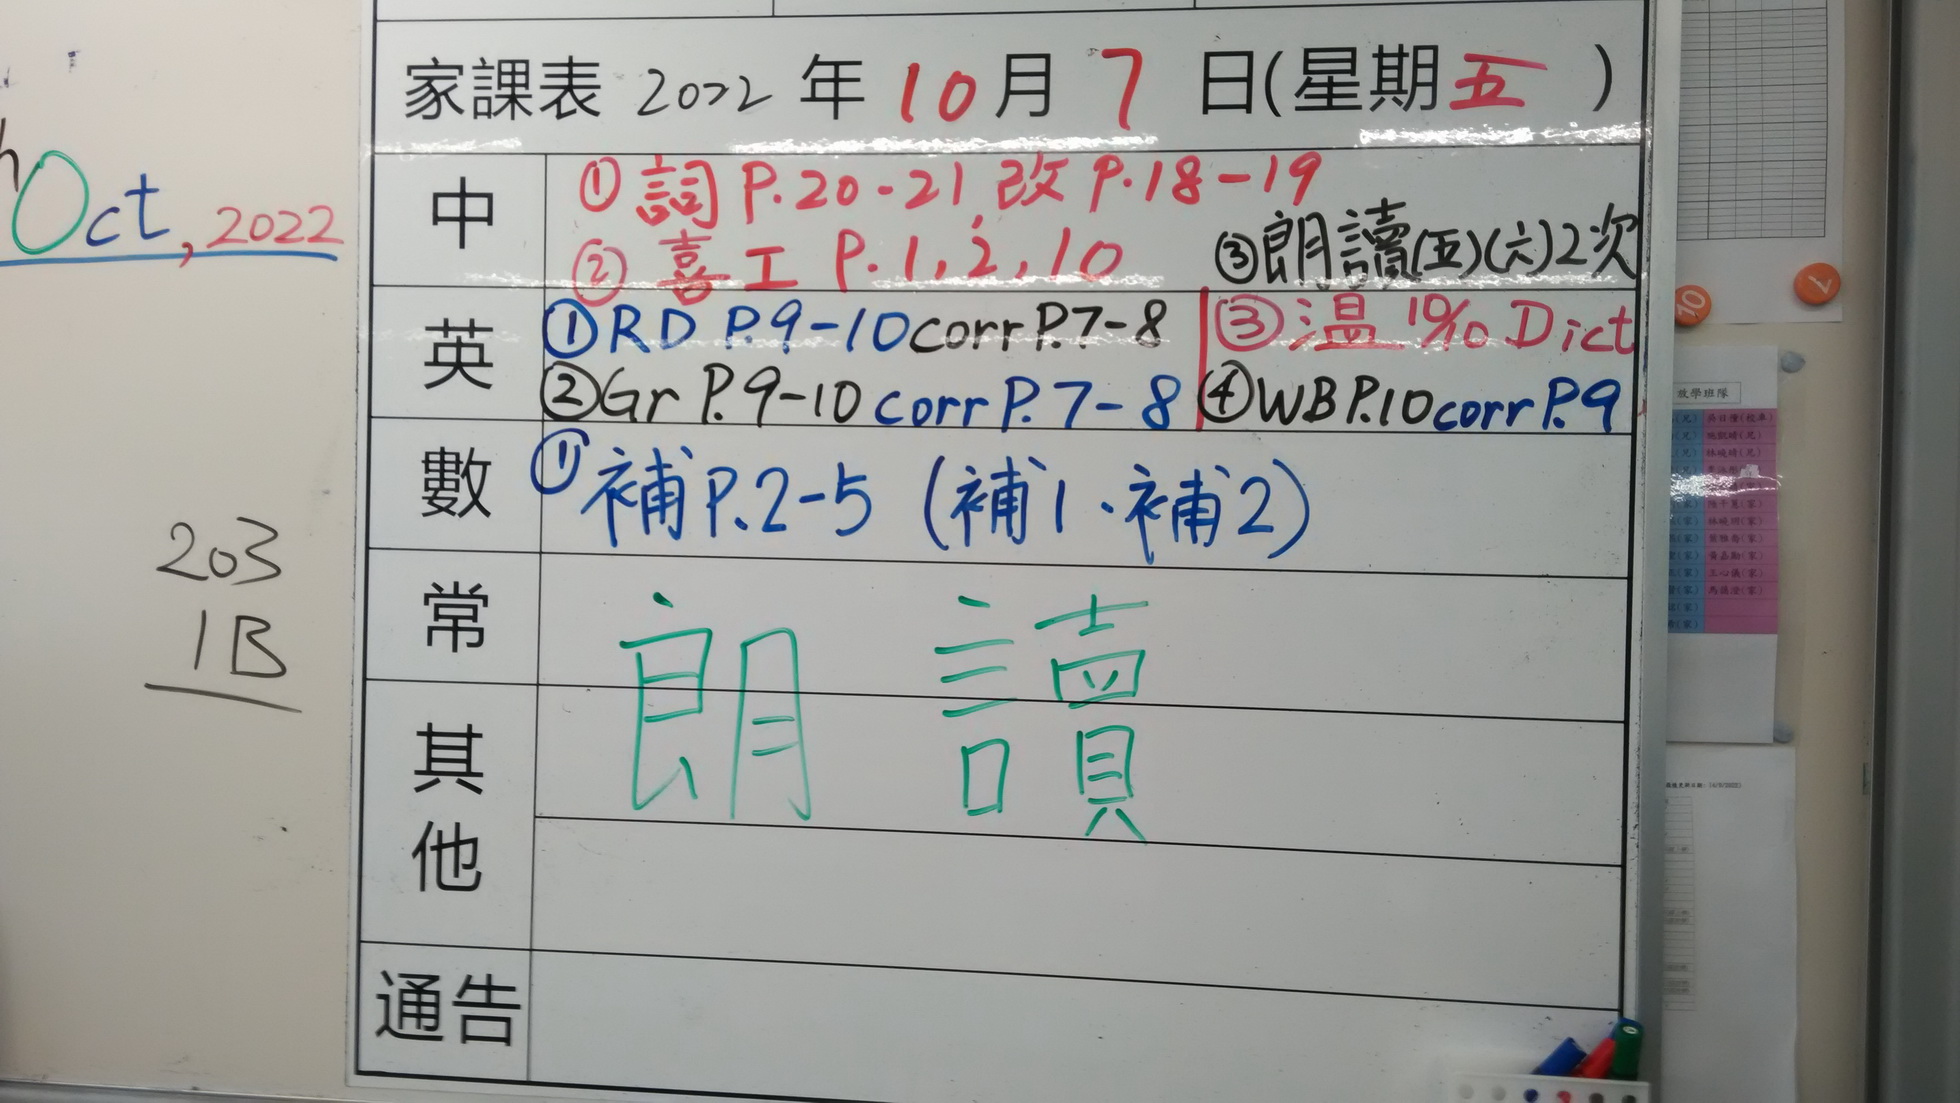 Oct, 2022
203
1B
家課表 2022 年 10 月 7 日(星期五)
中
① 詞 P.20-21, 改 P.18-19
② 喜工 P.1, 2, 10
③朗讀(五)(六)2次
英
①RD P.9-10 corr P.7-8
③溫 10/10 Dict
②Gr P.9-10 corr P.7-8
④WB P.10 corr P.9
數
① 補 P.2-5 (補1、補2)
常
朗 讀
其他
通告
放學班隊